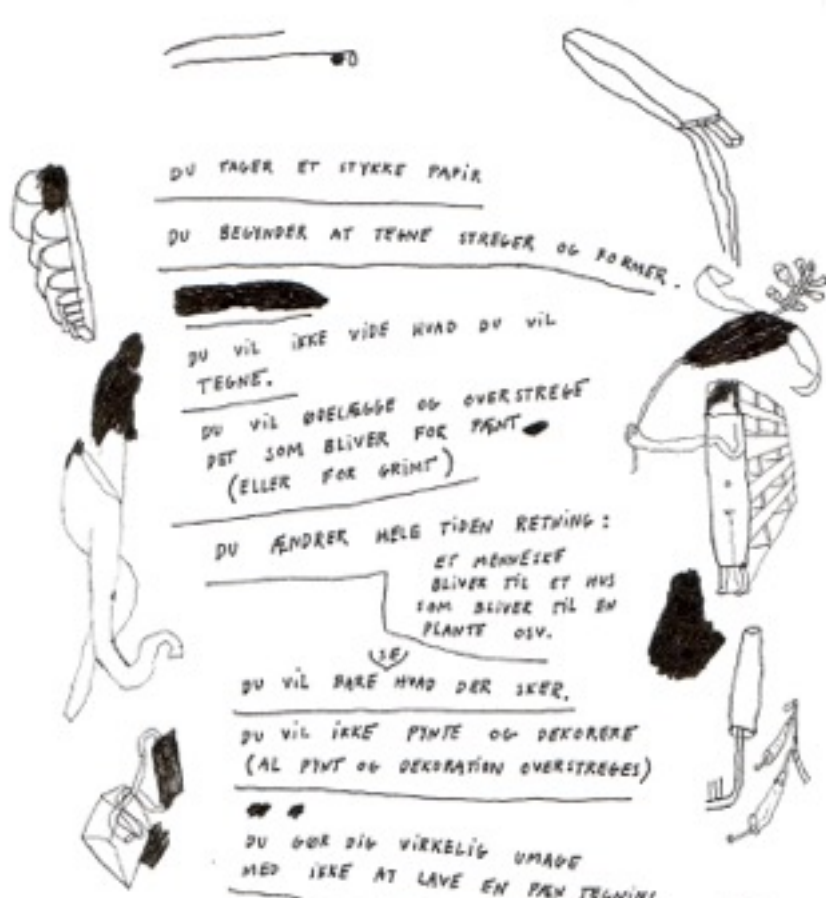 DU TAGER ET STYKKE PAPIR
DU BEGYNDER AT TEGNE STREGER OG FORMER.
DU ViL iKKE ViDE HVAD DU ViL
TEGNE.
DU ViL ØDELÆGGE OG OVERSTREGE
DET SOM BLiVER FOR PÆNT
(ELLER FOR GRiMT)
DU ÆNDRER HELE TiDEN RETNiNG:
ET MENNESKE
BLiVER TiL ET HUS
SOM BLiVER TiL EN
PLANTE OSV.
SE
DU ViL BARE HVAD DER SKER.
DU ViL iKKE PYNTE OG DEKORERE
(AL PYNT OG DEKORATiON OVERSTREGES)
DU GØR DiG ViRKELiG UMAGE
MED iKKE AT LAVE EN PÆN TEGNiNG